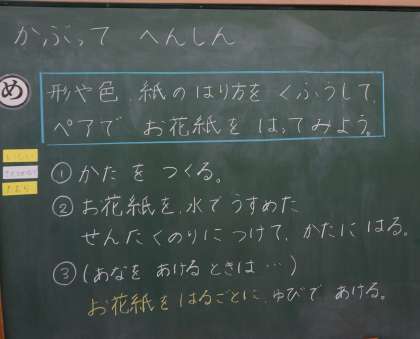 かぶって へんしん
め
形や色、紙のはり方をくふうして、
ペアで お花紙を はってみよう。
① かたを つくる。
② お花紙を、水でうすめた
せんたくのりにつけて、かたにはる。
③ (あなを あけるときは…)
お花紙を はるごとに、ゆびで あける。